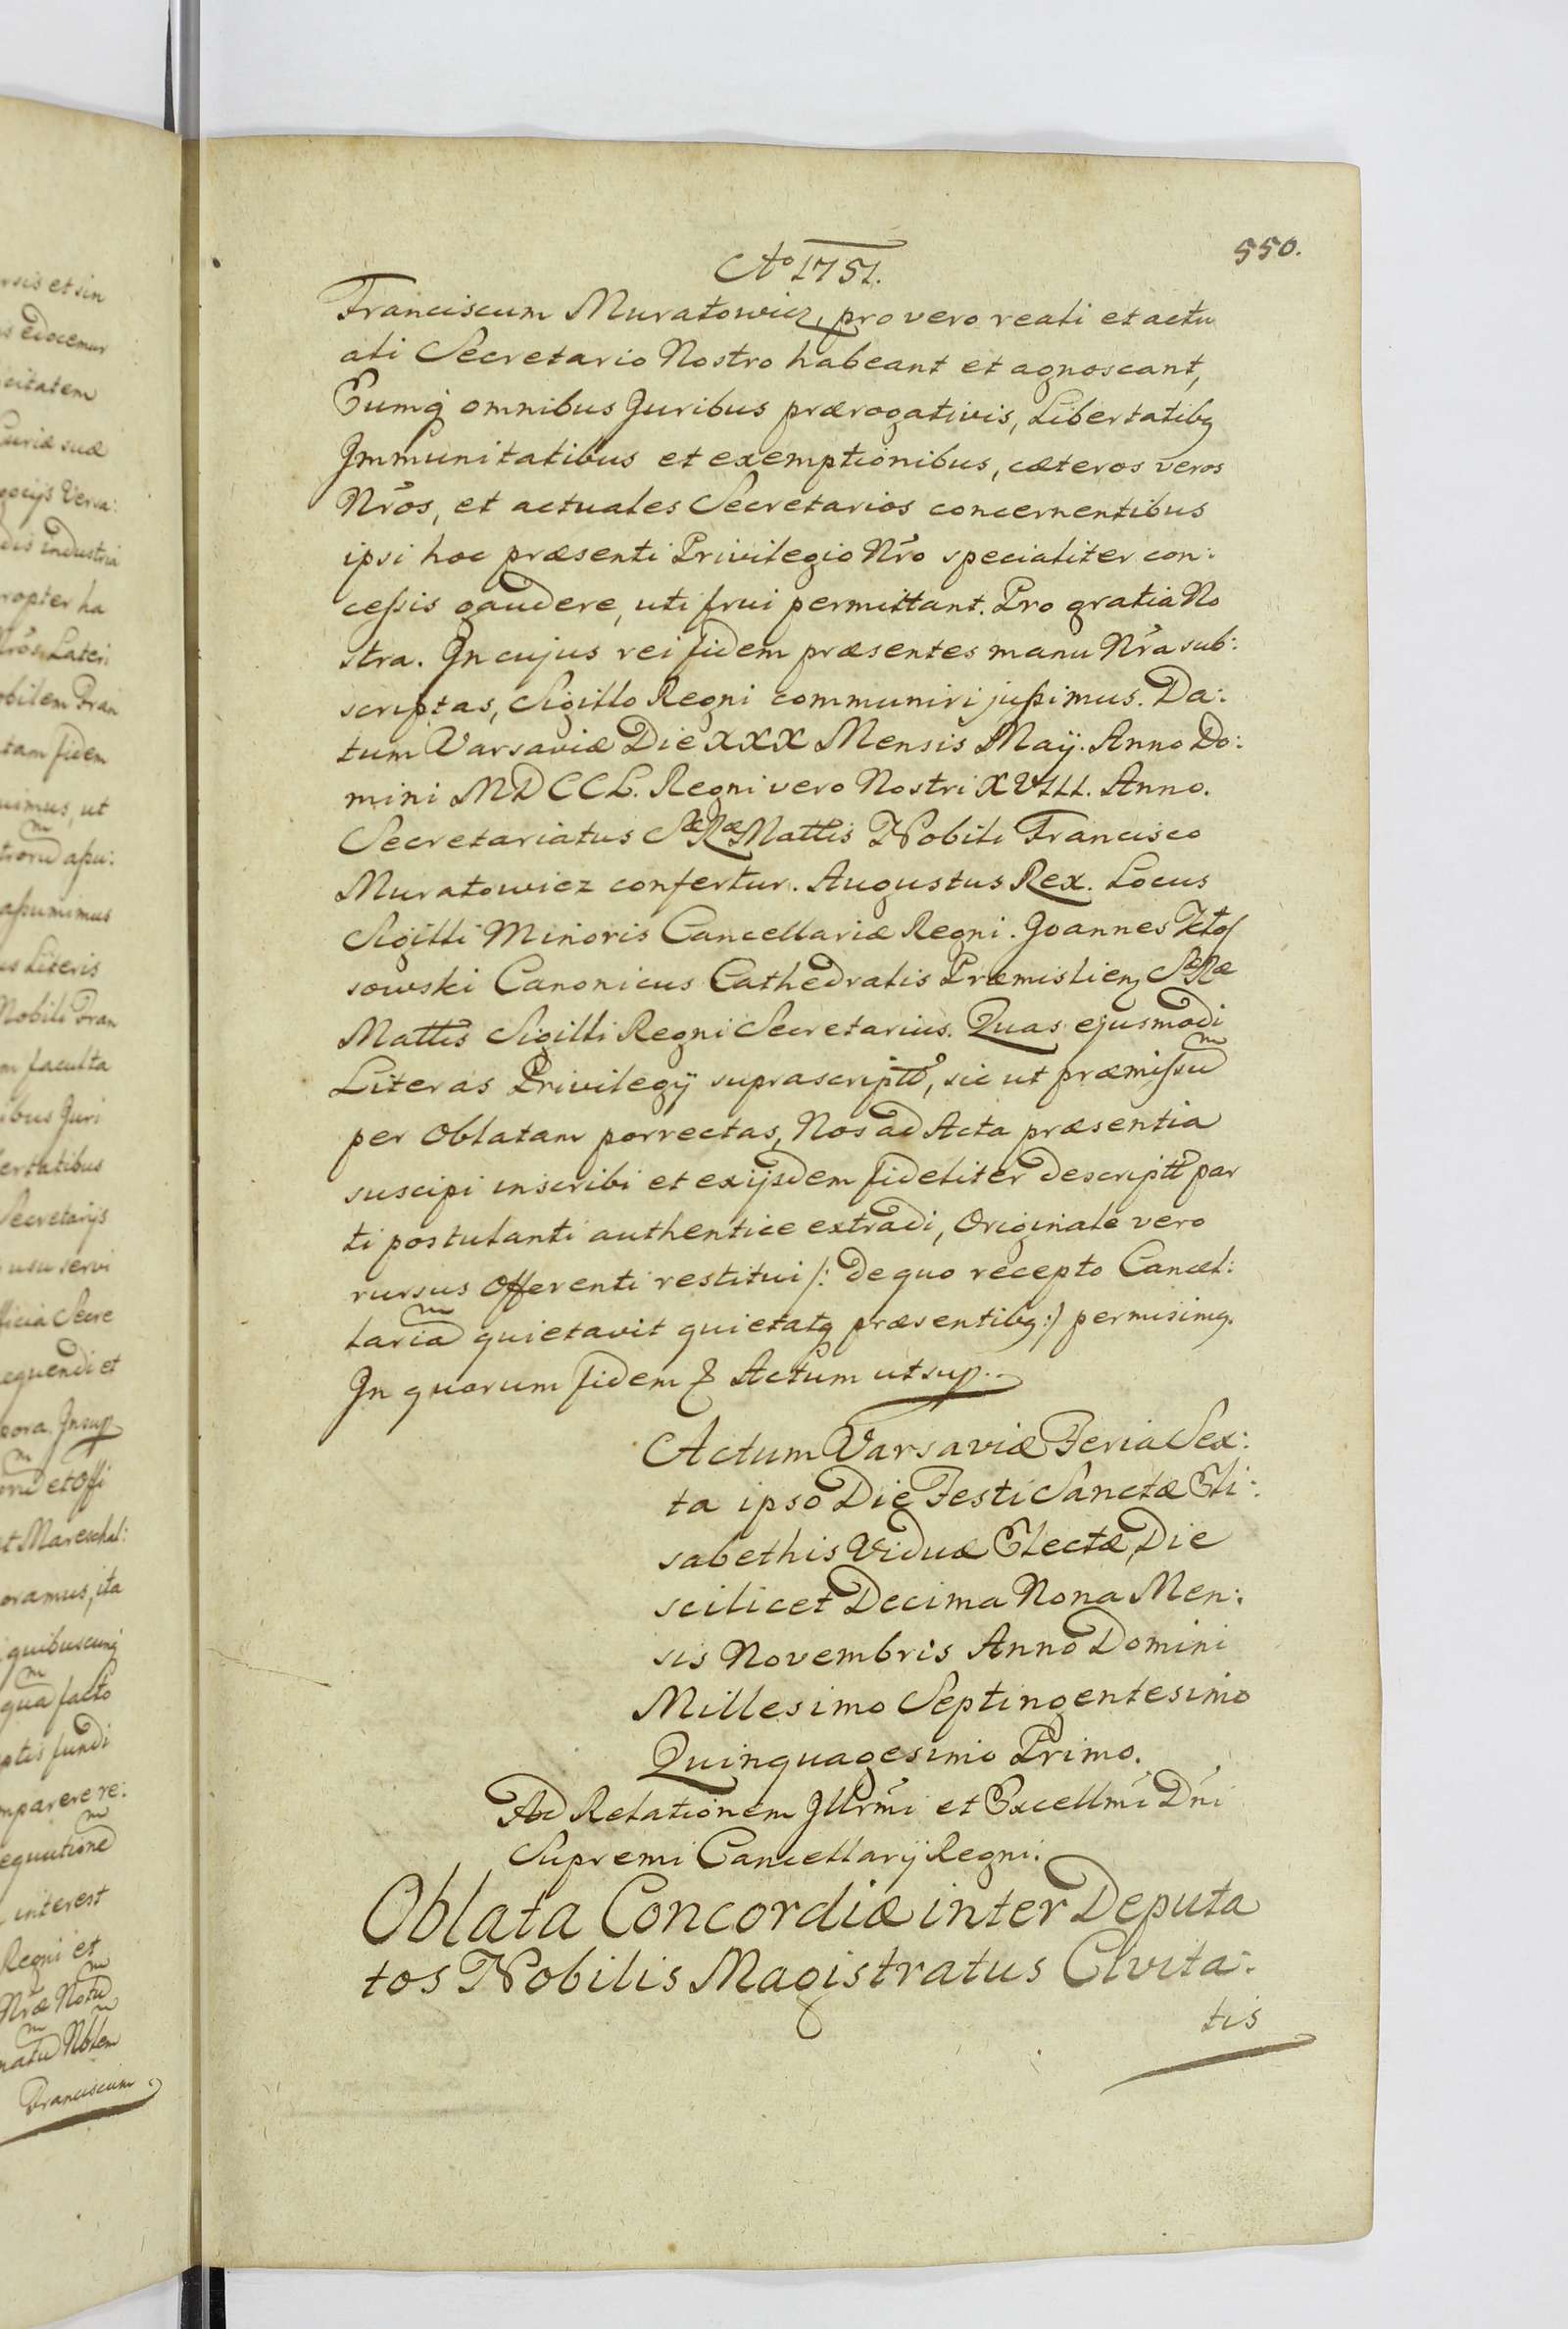 550.
Ao 1751.
Franciscum Muratowicz, pro vero reali et actu
ali Secretario Nostro habeant et agnoscant,
Eumq́ omnibus Juribus prærogativis, Libertatibq
Jmmunitatibus et exemptionibus, cæteros veros
Nr̃os, et actuales Secretarios concernentibus
ipsi hoc præsenti Privilegio Nr̃o specialiter con:
ceſsis gaudere, uti frui permittant. Pro gratia No
stra. Jn cujus rei fidem præsentes manu Nr̃a sub:
scriptas, Sigillo Regni communiri juſsimus. Da:
tum Varsaviæ Die XXX Mensis Maÿ. Anno Do:
mini MDCCL. Regni vero Nostri XVIII. Anno.
Secretariatus Sæ Ræ Mattis Nobili Francisco
Muratowicz confertur. Augustus Rex. Locus
Sigilli Minoris Cancellariæ Regni. Joannes
sowski Canonicus Cathedralis Præmislienq Sæ Ræ
Mattis Sigilli Regni Secretarius. Quas ejusmodi
Literas Privilegÿ suprascriptt, sic ut præmiſsũ
per Oblatam porrectas, Nos ad Acta præsentia
suscipi inscribi et exijsdem fideliter descriptt par
ti postulanti authentice extradi, Originale vero
rursus Offerenti restitui /: de quo recepto Cancel:
lariã quietavit quietatq præsentibq :/ permisimq.
Jn quorum fidem & Actum ut sup.
Actum Varsaviæ Feria Sex:
ta ipso Die Festi Sanctæ Eli:
sabethis Viduæ Electæ, Die
scilicet Decima Nona Men:
sis Novembris Anno Domini
Millesimo Septingentesimo
Quinquagesimo Primo.
Ad Relationem Jllr̃mi et Excellm̃i Dñi
Supremi Cancellarÿ Regni.
Oblata Concordiæ inter Deputa
tos Nobilis Magistratus Civita:
tis